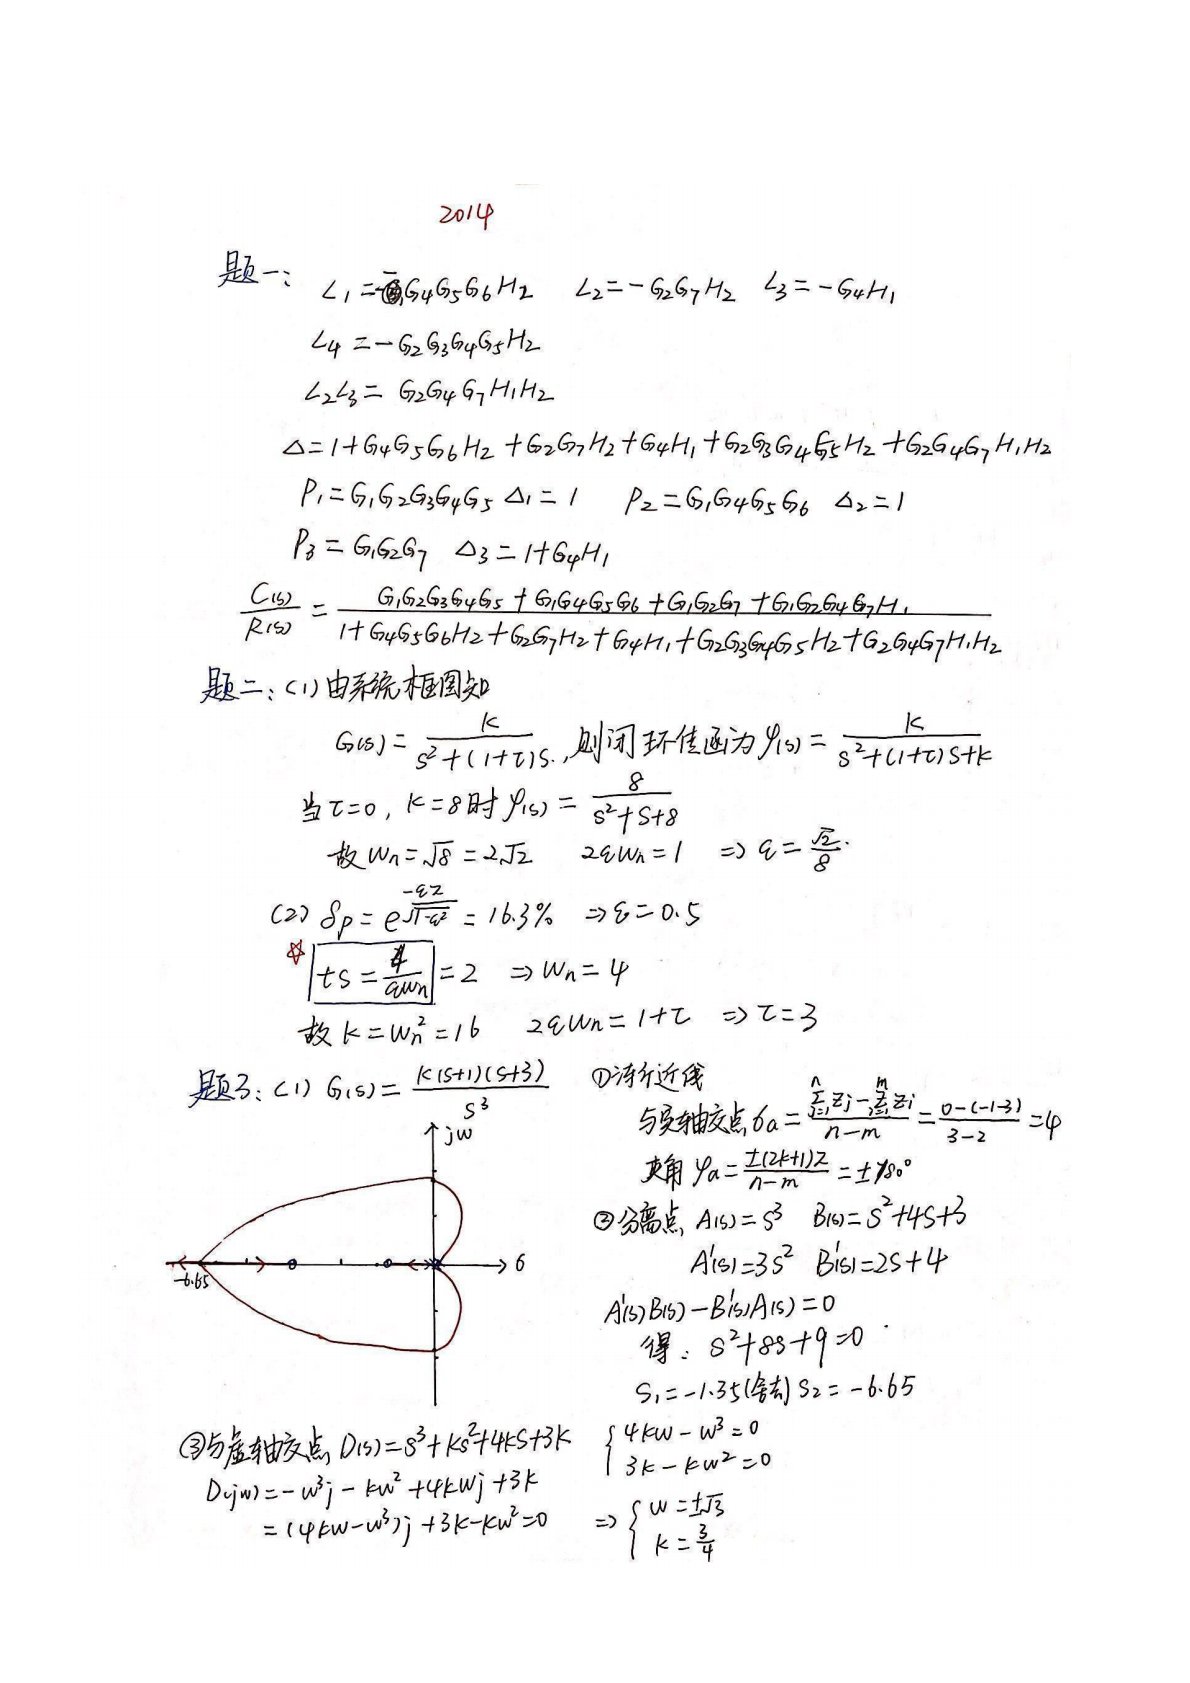 2014
题一: L₁=-G₄G₅G₆H₂ L₂=-G₂G₇H₂ L₃=-G₄H₁
L₄=-G₂G₃G₄G₅H₂
L₂L₃= G₂G₄G₇H₁H₂
Δ=1+G₄G₅G₆H₂+G₂G₇H₂+G₄H₁+G₂G₃G₄G₅H₂+G₂G₄G₇H₁H₂
P₁=G₁G₂G₃G₄G₅ Δ₁=1 P₂=G₁G₄G₅G₆ Δ₂=1
P₃=G₁G₂G₇ Δ₃=1+G₄H₁
C(s)/R(s) = (G₁G₂G₃G₄G₅+G₁G₄G₅G₆+G₁G₂G₇+G₁G₂G₄G₇H₁)/(1+G₄G₅G₆H₂+G₂G₇H₂+G₄H₁+G₂G₃G₄G₅H₂+G₂G₄G₇H₁H₂)
题二: (1) 由系统框图知
G(s)=K/(s²+(1+τ)s), 则闭环传函为φ(s)=K/(s²+(1+τ)s+K)
当τ=0, K=8时φ(s)=8/(s²+s+8)
故ωn=√8=2√2 2ξωn=1 => ξ=√2/8
(2) δp=e^(-ξπ/√(1-ξ²))=16.3% => ξ=0.5
☆ ts=4/(ξωn)=2 => ωn=4
故K=ωn²=16 2ξωn=1+τ => τ=3
题3: (1) G(s)=K(s+1)(s+3)/s³
jω
σ
-6.65
①渐近线
与实轴交点σa=(Σⁿⱼ₌₁Zj-Σᵐᵢ₌₁Zi)/(n-m)=(0-(-1-3))/(3-2)=4
夹角φa=±(2k+1)π/(n-m)=±180°
②分离点 A(s)=s³ B(s)=s²+4s+3
A'(s)=3s² B'(s)=2s+4
A'(s)B(s)-B'(s)A(s)=0
得: s²+8s+9=0
s₁=-1.35(舍去) s₂=-6.65
③与虚轴交点 D(s)=s³+Ks²+4Ks+3K
D(jω)=-ω³j-Kω²+4Kωj+3K
=(4Kω-ω³)j+3K-Kω²=0
{4Kω-ω³=0
3K-Kω²=0
=> {ω=±√3
K=3/4